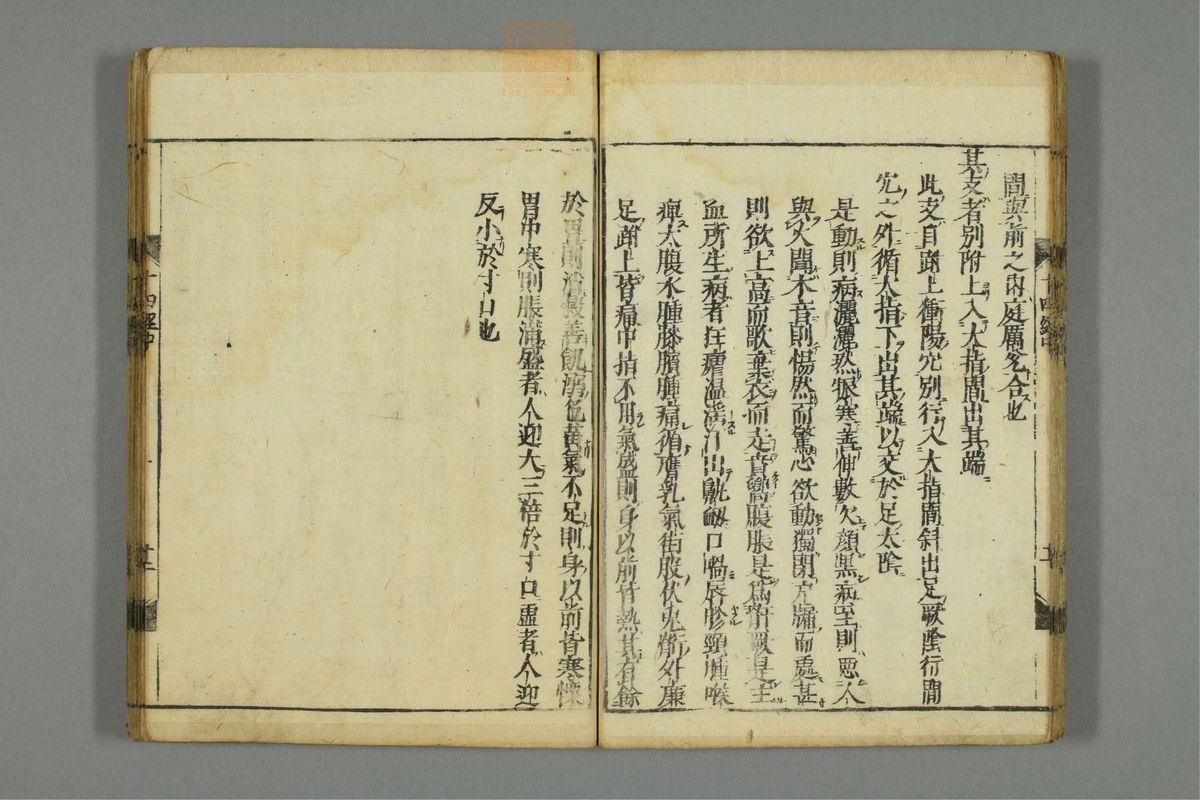 間與前之內庭厲兌合也
其支者別附上入大指間出其端
此支自跗上衝陽穴別行入大指間斜出足厥陰行間
穴之外循大指下出其端以交於足太陰
是動則病灑灑然振寒善伸數欠顏黑病至則惡人
與火聞木音則惕然而驚心欲動獨閉戶牖而處甚
則欲上高而歌棄衣而走賁響腹脹是爲骭厥是主
血所生病者狂瘧温淫汗出鼽衂口喎唇胗頸腫喉
痺大腹水腫膝臏腫痛循膺乳氣街股伏兔骭外廉
足跗上皆痛中指不用氣盛則身以前皆熱其有餘
於胃則消穀善飢溺色黃氣不足則身以前皆寒慄
胃中寒則脹滿盛者人迎大三倍於寸口虛者人迎
反小於寸口也
十四經中